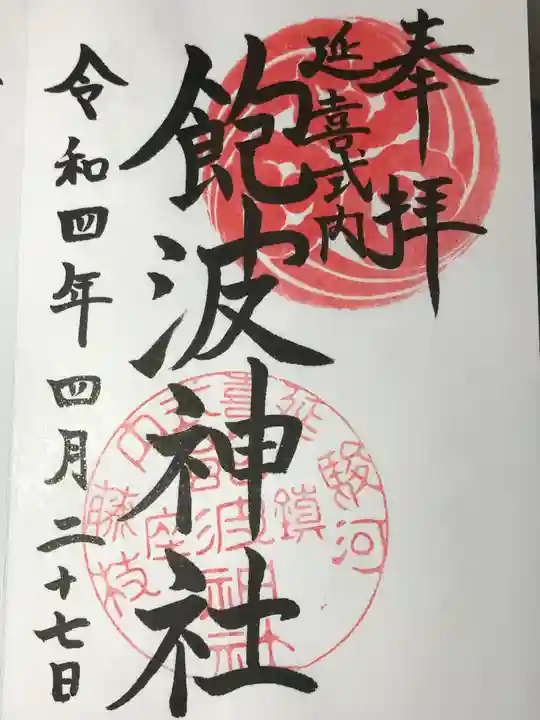 奉拝
延喜式内
飽波神社
令和四年四月二十七日
駿河
延喜式内
鎮座
藤枝
飽波神社